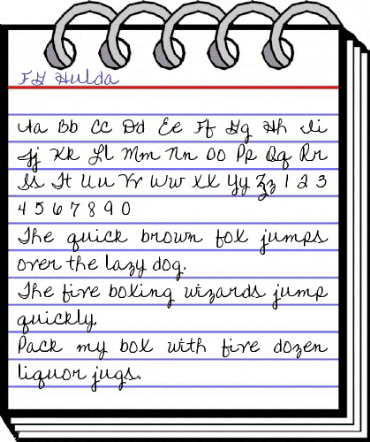 FG Hulda
Aa Bb Cc Dd Ee Ff Gg Hh Ii
Jj Kk Ll Mm Nn Oo Pp Qq Rr
Ss Tt Uu Vv Ww Xx Yy Zz 1 2 3
4 5 6 7 8 9 0
The quick brown fox jumps
over the lazy dog.
The five boxing wizards jump
quickly.
Pack my box with five dozen
liquor jugs.